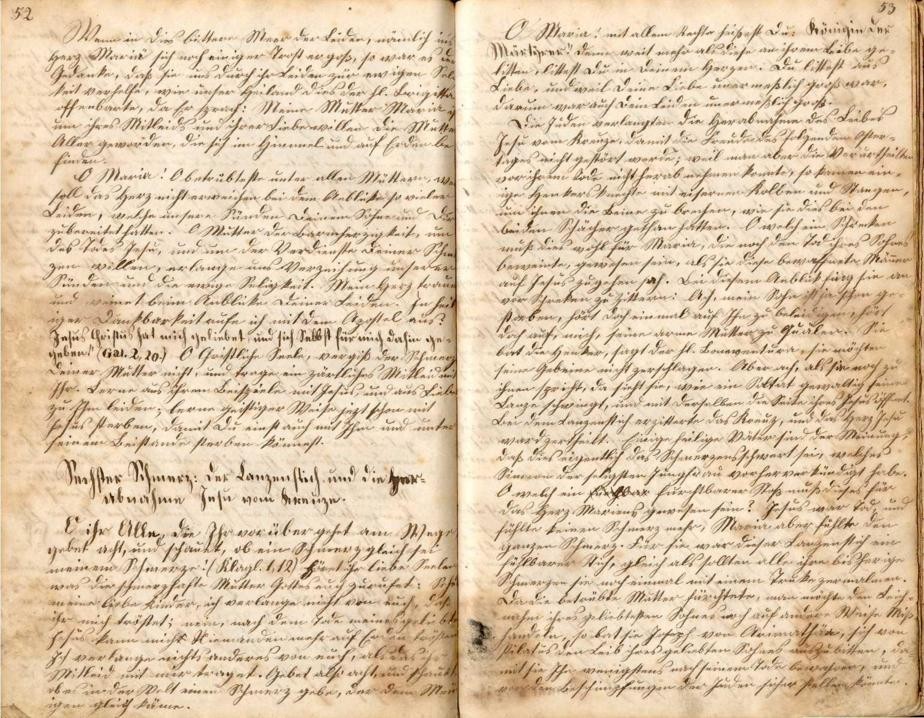 52
Wenn in dies bittere Meer der Leiden, nämlich in's
Herz Mariä sich noch einiger Trost ergoß, so war es der
Gedanke, daß sie uns durch ihr Leiden zur ewigen Selig-
keit verhelfe, wie unser Heiland dies der hl. Brigitta
offenbarte, da Er sprach: Meine Mutter Maria ist
um ihres Mitleids und ihrer Liebe willen die Mutter
Aller geworden, die sich im Himmel und auf Erden be-
finden.
O Maria! O betrübteste unter allen Müttern, wie
soll das Herz nicht erweichen bei dem Anblicke so vieler
Leiden, welche unsere Sünden Deinem Sohne und Dir
zubereitet hatten. O Mutter der Barmherzigkeit, um
des Todes Jesu, und um der Verdienste Deiner Schmer-
zen willen, erlange uns Verzeihung unserer
Sünden und die ewige Seligkeit. Mein Herz traure
und weinet beim Anblicke Deiner Leiden. In heil-
iger Dankbarkeit rufe ich mit dem Apostel aus:
Jesus Christus hat mich geliebet, und sich selbst für mich dahin ge-
geben! (Gal. 2, 20.) O Christliche Seele, vergiß der Schmerzen
Deiner Mutter nicht, und trage ein zärtliches Mitleid mit
Ihr. Lerne aus ihrem Beispiele mit Jesus, und aus Liebe
zu Ihm leiden; lerne geistiger Weise jezt schon mit
Jesus sterben, damit Du einst auch mit Ihm und unter
seinem Beistande sterben könnest.
Sechster Schmerz: Der Lanzenstich und die Her-
abnahme Jesu vom Kreuze.
O ihr Alle, die Ihr vorüber gehet am Wege
gebet acht, und schauet, ob ein Schmerz gleich sei
meinem Schmerze! (Klagl. 1, 12) Höret ihr liebe Seelen
was die schmerzhafte Mutter Gottes euch zurufet:
meine liebe Kinder, ich verlange nicht von euch, daß
ihr mich tröstet; nein, nach dem Tode meines geliebten
Jesus kann mich Niemanden mehr auf Erden trösten
Ich verlange nichts anderes von euch, als daß ihr
Mitleid mit mir traget. Gebet also acht, und schauet
ob es in der Welt einen Schmerz gebe, der dem Mein-
igen gleich käme.
53
O Maria! mit allem Rechte heißest Du: Königin der
Märtyrer! denn weit mehr als diese an ihrem Leibe ge-
litten, littest Du in Deinem Herzen. Du littest aus
Liebe, und weil Deine Liebe unermeßlich groß war,
darum war auch Dein Leiden unermeßlich groß.
Die Juden verlangten die Herabnahme des Leibes
Jesu vom Kreuze, damit die Freude des folgenden Oster-
tages nicht gestört werde; weil man aber die Verurtheilten
vor ihrem Tode nicht herab nehmen konnte, so kamen ein-
ige Henkersknechte mit eisernen Kolben und Stangen,
um ihnen die Beine zu brechen, wie sie dies bei den
beiden Schächer gethan hatten. O welch ein Schrecken
muß dies wohl für Maria, die noch den Tod ihres Sohnes
beweinte, gewesen sein, als sie diese bewaffnete Männer
auf Jesus zugehen sah. Bei diesem Anblick fing sie an
vor Schrecken zu zittern: Ach, mein Sohn ist ja schon ge-
storben, hört doch einmal auf Ihn zu beleidigen, hört
doch auf, mich, seine arme Mutter zu quälen. Sie
bat die Henker, sagt der hl. Bonaventura, sie möchten
seine Gebeine nicht zerschlagen. Aber ach, als sie so zu
ihnen spricht, da sieht sie, wie ein Soldat gewaltig seine
Lanze schwingt, und mit derselben die Seite ihres Jesus öffnet.
Bei dem Lanzenstich erzitterte das Kreuz, und das Herz Jesu
ward zertheilt. Einige heilige Väter sind der Meinung,
daß dies eigentlich das Schmerzensschwert sei, welches
Simeon der seligsten Jungfrau vorher verkündigt habe.
O welch ein furchtbarer Stoß muß dieses für
das Herz Mariens gewesen sein! Jesus war todt und
fühlte keinen Schmerz mehr, Maria aber fühlte den
ganzen Schmerz. Für sie war dieser Lanzenstich ein
fühlbarer Stich, gleich als sollten alle ihre bisherige
Schmerzen sie noch einmal mit einem Drucke zermalmen.
Da die betrübte Mutter fürchtete, man möchte den Leich-
nahm ihres geliebtesten Sohnes noch auf andere Weise miß-
handeln, so bat sie Joseph von Arimathäa, sich von
Pilatus den Leib ihres geliebten Sohnes auszubitten, da-
mit sie Ihn wenigstens nach seinem Tode bewahren, und
vor den Beschimpfungen der Juden sicher stellen könnte.